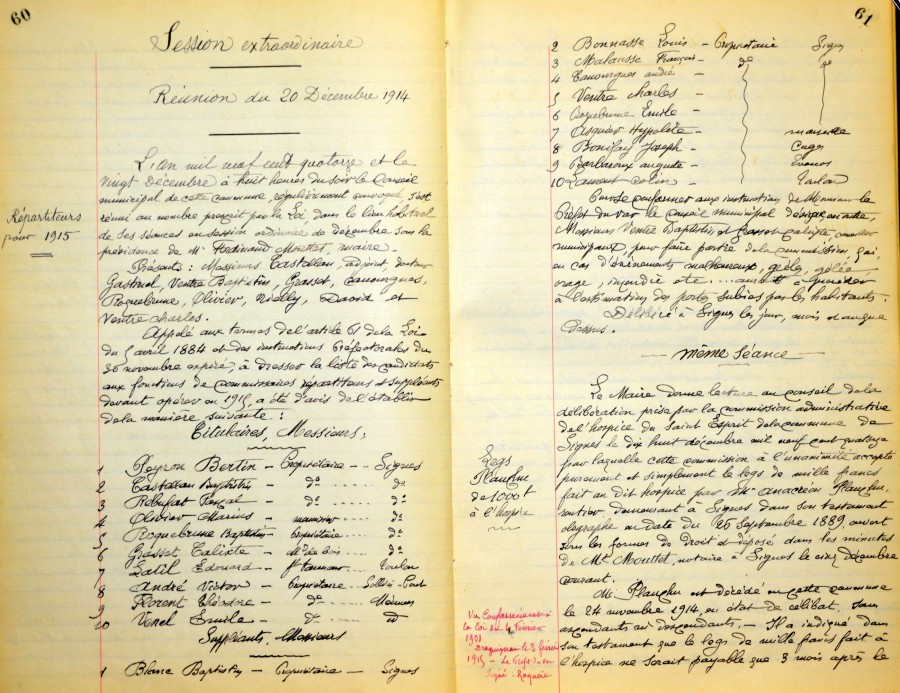 60
Session extraordinaire
Réunion du 20 Décembre 1914
Répartiteurs
pour 1915
L'an mil neuf cent quatorze et le
vingt Décembre à huit heures du soir le Conseil
municipal de cette commune, régulièrement convoqué, s'est
réuni au nombre prescrit par la Loi, dans le lieu habituel
de ses séances en session ordinaire de décembre sous la
présidence de Mr Ferdinand Mouttet, maire.
Présents : Messieurs Castellan, adjoint, docteur
Gastinel, Ventre Baptistin, Grasset, Camourgues,
Roquebrune, Olivier, Nielly, David et
Ventre charles.
Appelé aux termes de l'article 61 de la Loi
du 5 avril 1884 et des instructions Préfectorales du
30 novembre expiré, à dresser la liste des candidats
aux fonctions de commissaires répartiteurs et suppléants
devant opérer en 1915, a été d'avis de l'établir
de la manière suivante :
Titulaires, Messieurs,
1 Peyron Bertin - Propriétaire - Signes
2 Castellan Baptistin - do ..... do
3 Rebufat - do ..... do
4 Olivier Marius - ..... do
5 Roquebrune Baptistin - Propriétaire .... do
6 Grasset Calixte - Md de bois .... do
7 Latil Edouard - .... Toulon
8 André Victor - Propriétaire .. Solliès-Pont
9 Florent Théodore - do ..... Méounes
10 Venel Emile - do ..... do
Suppléants Messieurs
1 Blanc Baptistin - Propriétaire - Signes
61
2 Bonnasse Louis - Propriétaire Signes
3 Malausse François - do do
4 Camourgues andré -
5 Ventre charles -
6 Roquebrune Emile -
7 Asquier Hypolite - marseille
8 Bonifay Joseph - Cuges
9 Barbaroux auguste - Evenos
10 Laurent Colin - Toulon
Pour se conformer aux instructions de Monsieur le
Préfet du Var le conseil municipal désigne en outre,
Messieurs Ventre Baptistin et Grasset Calixte conseillers
municipaux, pour faire partie de la commission qui,
en cas d'événements malheureux, grêle, gelée,
orage, incendie etc... aurait à procéder
à l'estimation des pertes subies par les habitants.
Délibéré à Signes les jour, mois et an que
dessus.
même séance
Legs
Planchu
de 1000 f
à l'hospice
Le Maire donne lecture au conseil de la
délibération prise par la commission administrative
de l'hospice du Saint Esprit de la commune de
Signes le dix huit décembre mil neuf cent quatorze
par laquelle cette commission à l'unanimité accepte
purement et simplement le legs de mille francs
fait au dit hospice par Mr anacréon Planchu,
rentier demeurant à Signes dans son testament
olographe en date du 26 Septembre 1889, ouvert
sous les formes de droit et déposé dans les minutes
de Me Mouttet, notaire à Signes le cinq Décembre
courant.
Mr Planchu est décédé en cette commune
le 24 novembre 1914, en état de célibat, sans
ascendants ni descendants. - Il a indiqué dans
son testament que le legs de mille francs fait à
l'hospice ne serait payable que 3 mois après le
Vu Conformément à
la loi du 4 février
1901
Draguignan le 3 février
1915 - Le Préfet du Var
Signé :